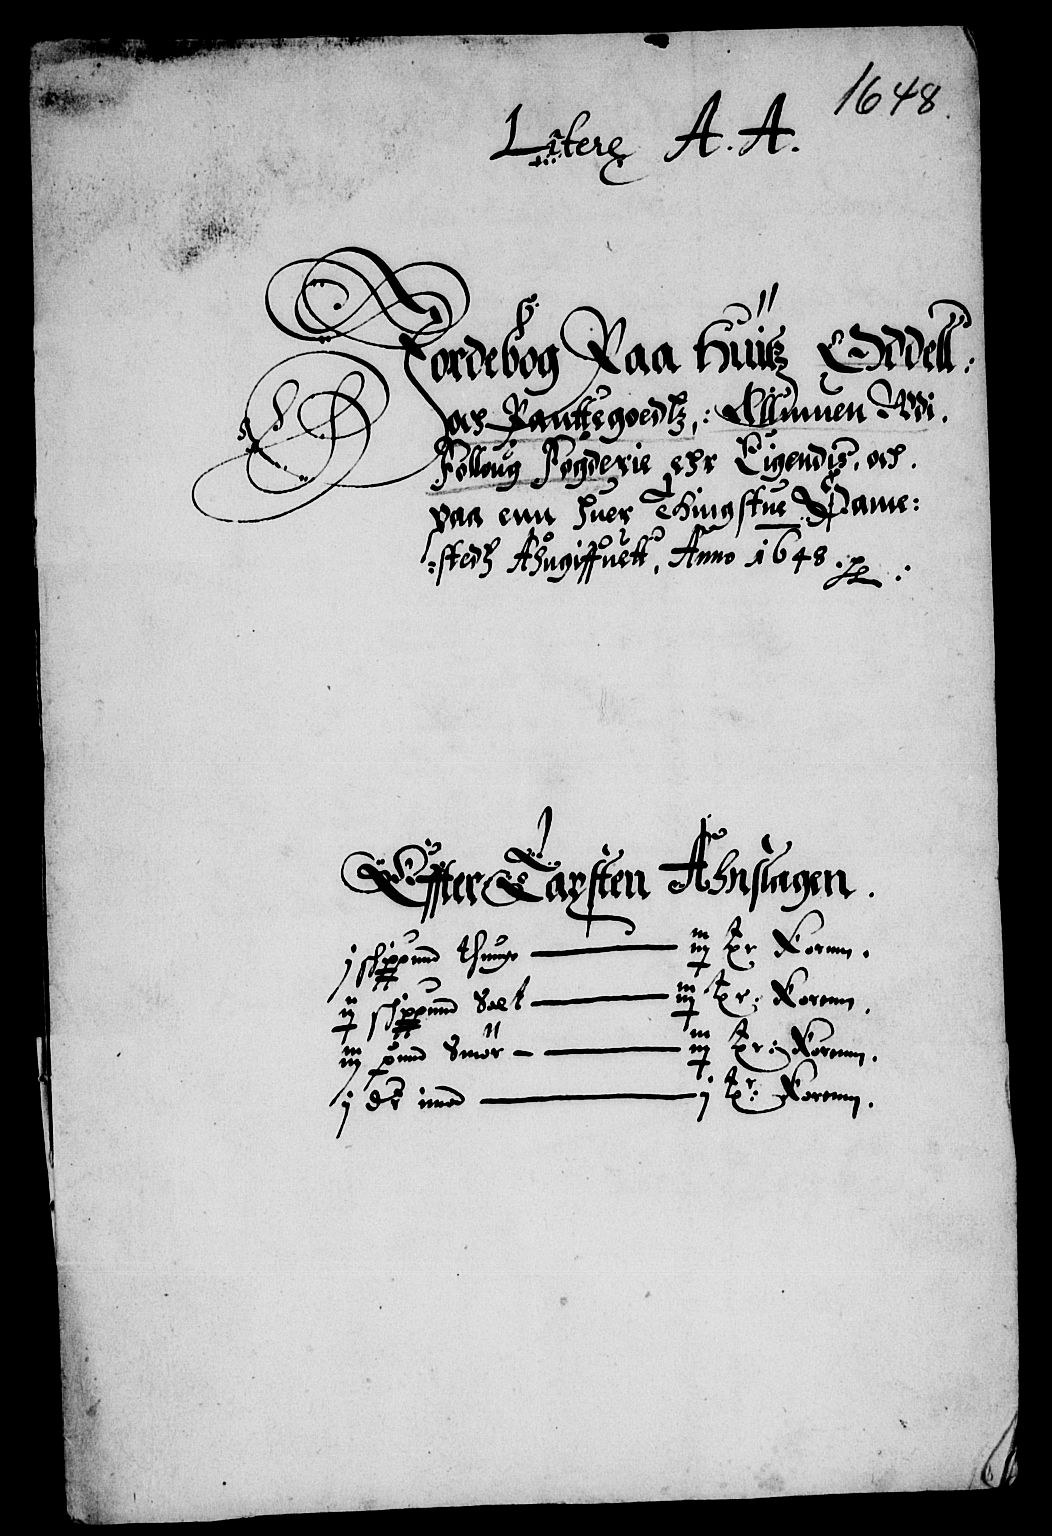 1648.
Litere A. A.
Jordebog Paa Huis Oddell:
och Panttegoedtz, Allmuen Udi.
Folloug Fogderie ehr Eigendis, och.
paa enn huer Thingstue Name:
:stedh Ahngiffuett, Anno 1648.
Effter Taxten Ahnslagen.
j schippund thunge — iiij tr Kornn.
ij schippund Salt — iiij tr: Kornn.
iiij pund Smör — iiij tr: Kornn.
j dr — j tr: Kornn.